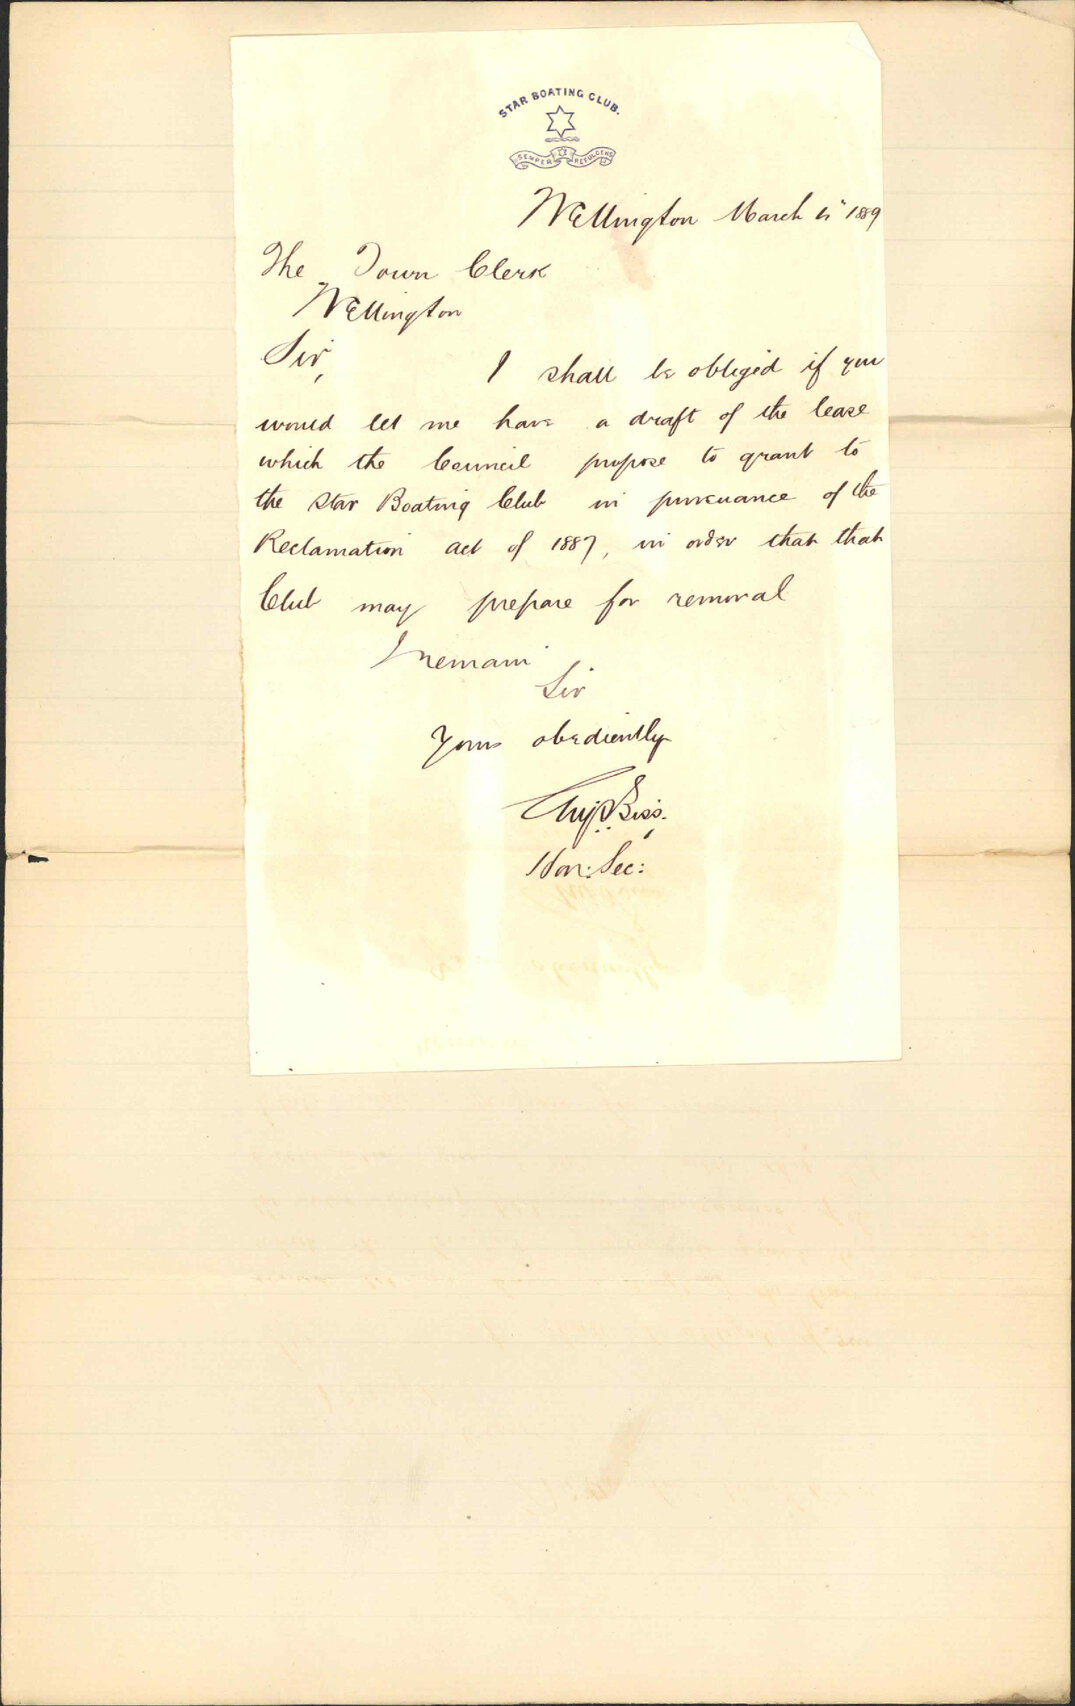 STAR BOATING CLUB.
SEMPER REFULGENS
Wellington March 1889
The Town Clerk
Wellington
Sir,
I shall be obliged if you
would let me have a draft of the lease
which the Council propose to grant to
the Star Boating Club in pursuance of the
Reclamation act of 1887, in order that that
Club may prepare for removal
I remain
Sir
Yours obediently
Biss.
Hon: Sec: